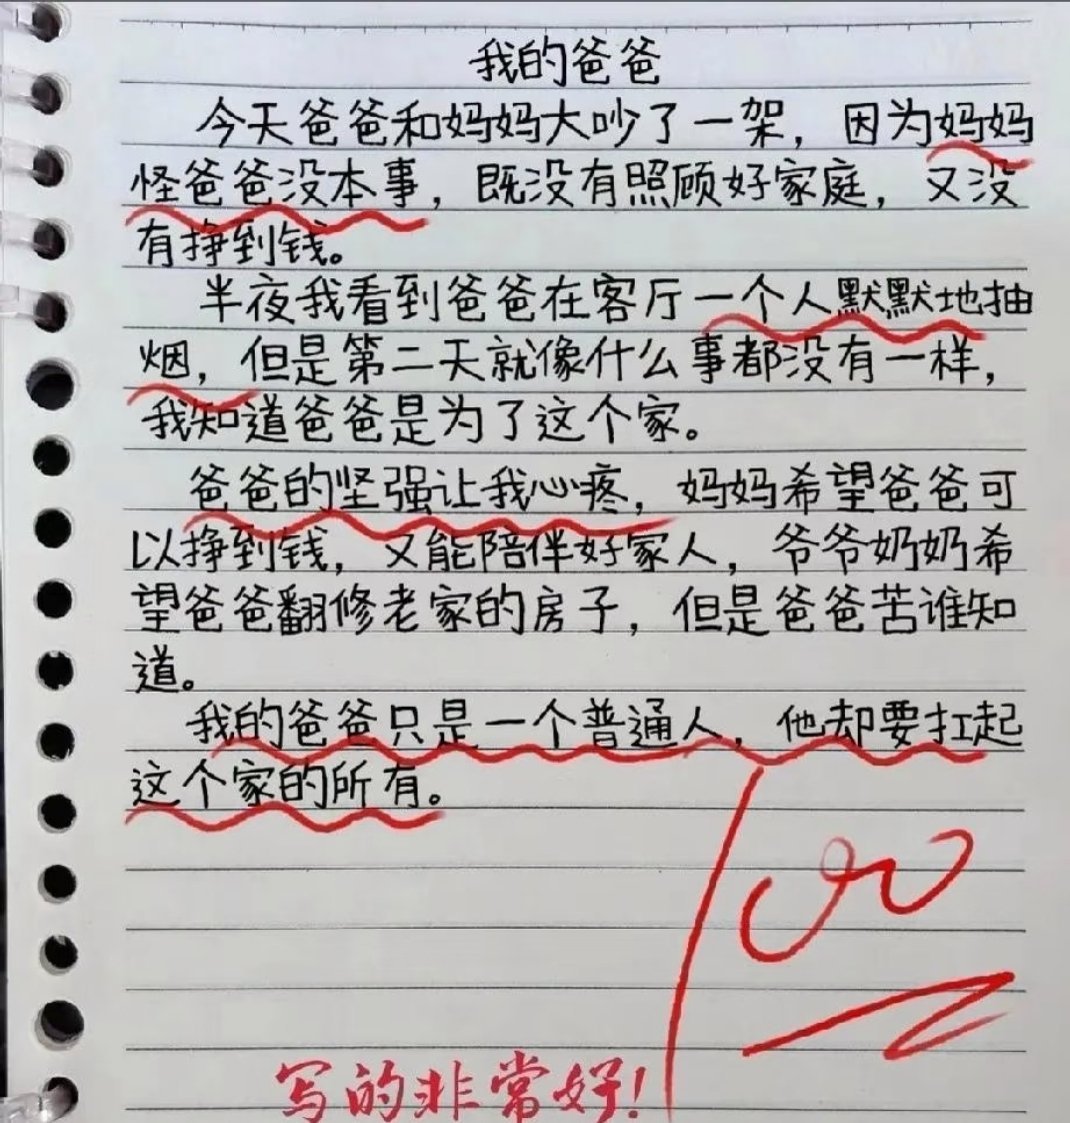 我的爸爸
今天爸爸和妈妈大吵了一架，因为妈妈
怪爸爸没本事，既没有照顾好家庭，又没
有挣到钱。
半夜我看到爸爸在客厅一个人默默地抽
烟，但是第二天就像什么事都没有一样，
我知道爸爸是为了这个家。
爸爸的坚强让我心疼，妈妈希望爸爸可
以挣到钱，又能陪伴好家人，爷爷奶奶希
望爸爸翻修老家的房子，但是爸爸苦谁知
道。
我的爸爸只是一个普通人，他却要扛起
这个家的所有。
100
写的非常好！